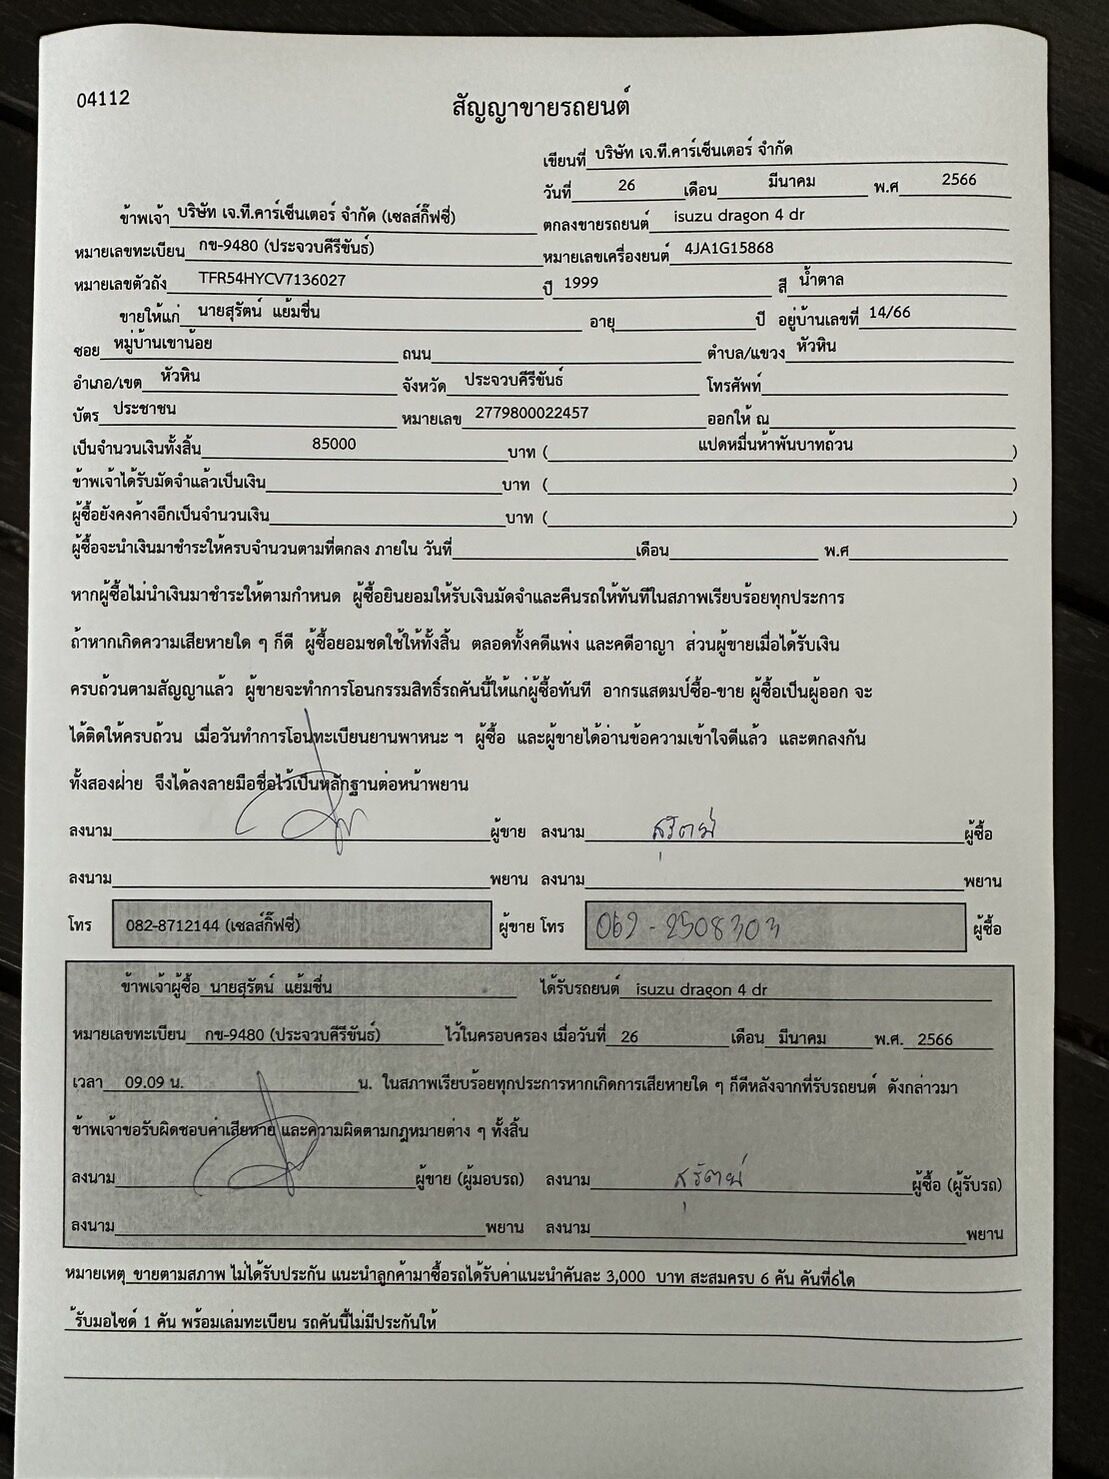 04112
สัญญาขายรถยนต์
เขียนที่ บริษัท เจ.ที.คาร์เซ็นเตอร์ จำกัด
วันที่ 26 เดือน มีนาคม พ.ศ 2566
ข้าพเจ้า บริษัท เจ.ที.คาร์เซ็นเตอร์ จำกัด (เซลส์กิ๊ฟซี่) ตกลงขายรถยนต์ isuzu dragon 4 dr
หมายเลขทะเบียน กข-9480 (ประจวบคีรีขันธ์) หมายเลขเครื่องยนต์ 4JA1G15868
หมายเลขตัวถัง TFR54HYCV7136027 ปี 1999 สี น้ำตาล
ขายให้แก่ นายสุรัตน์ แย้มชื่น อายุ ปี อยู่บ้านเลขที่ 14/66
ซอย หมู่บ้านเขาน้อย ถนน ตำบล/แขวง หัวหิน
อำเภอ/เขต หัวหิน จังหวัด ประจวบคีรีขันธ์ โทรศัพท์
บัตร ประชาชน หมายเลข 2779800022457 ออกให้ ณ
เป็นจำนวนเงินทั้งสิ้น 85000 บาท ( แปดหมื่นห้าพันบาทถ้วน )
ข้าพเจ้าได้รับมัดจำแล้วเป็นเงิน บาท ( )
ผู้ซื้อยังคงค้างอีกเป็นจำนวนเงิน บาท ( )
ผู้ซื้อจะนำเงินมาชำระให้ครบจำนวนตามที่ตกลง ภายใน วันที่ เดือน พ.ศ
หากผู้ซื้อไม่นำเงินมาชำระให้ตามกำหนด ผู้ซื้อยินยอมให้รับเงินมัดจำและคืนรถให้ทันทีในสภาพเรียบร้อยทุกประการ
ถ้าหากเกิดความเสียหายใด ๆ ก็ดี ผู้ซื้อยอมชดใช้ให้ทั้งสิ้น ตลอดทั้งคดีแพ่ง และคดีอาญา ส่วนผู้ขายเมื่อได้รับเงิน
ครบถ้วนตามสัญญาแล้ว ผู้ขายจะทำการโอนกรรมสิทธิ์รถคันนี้ให้แก่ผู้ซื้อทันที อากรแสตมป์ซื้อ-ขาย ผู้ซื้อเป็นผู้ออก จะ
ได้ติดให้ครบถ้วน เมื่อวันทำการโอนทะเบียนยานพาหนะ ฯ ผู้ซื้อ และผู้ขายได้อ่านข้อความเข้าใจดีแล้ว และตกลงกัน
ทั้งสองฝ่าย จึงได้ลงลายมือชื่อไว้เป็นหลักฐานต่อหน้าพยาน
ลงนาม ผู้ขาย ลงนาม สุรัตน์ ผู้ซื้อ
ลงนาม พยาน ลงนาม พยาน
โทร 082-8712144 (เซลส์กิ๊ฟซี่) ผู้ขาย โทร 062-2508303 ผู้ซื้อ
ข้าพเจ้าผู้ซื้อ นายสุรัตน์ แย้มชื่น ได้รับรถยนต์ isuzu dragon 4 dr
หมายเลขทะเบียน กข-9480 (ประจวบคีรีขันธ์) ไว้ในครอบครอง เมื่อวันที่ 26 เดือน มีนาคม พ.ศ. 2566
เวลา 09.09 น. น. ในสภาพเรียบร้อยทุกประการหากเกิดการเสียหายใด ๆ ก็ดีหลังจากที่รับรถยนต์ ดังกล่าวมา
ข้าพเจ้าขอรับผิดชอบค่าเสียหาย และความผิดตามกฎหมายต่าง ๆ ทั้งสิ้น
ลงนาม ผู้ขาย (ผู้มอบรถ) ลงนาม สุรัตน์ ผู้ซื้อ (ผู้รับรถ)
ลงนาม พยาน ลงนาม พยาน
หมายเหตุ ขายตามสภาพ ไม่ได้รับประกัน แนะนำลูกค้ามาซื้อรถได้รับค่าแนะนำคันละ 3,000 บาท สะสมครบ 6 คัน คันที่6ได
้รับมอไซด์ 1 คัน พร้อมเล่มทะเบียน รถคันนี้ไม่มีประกันให้